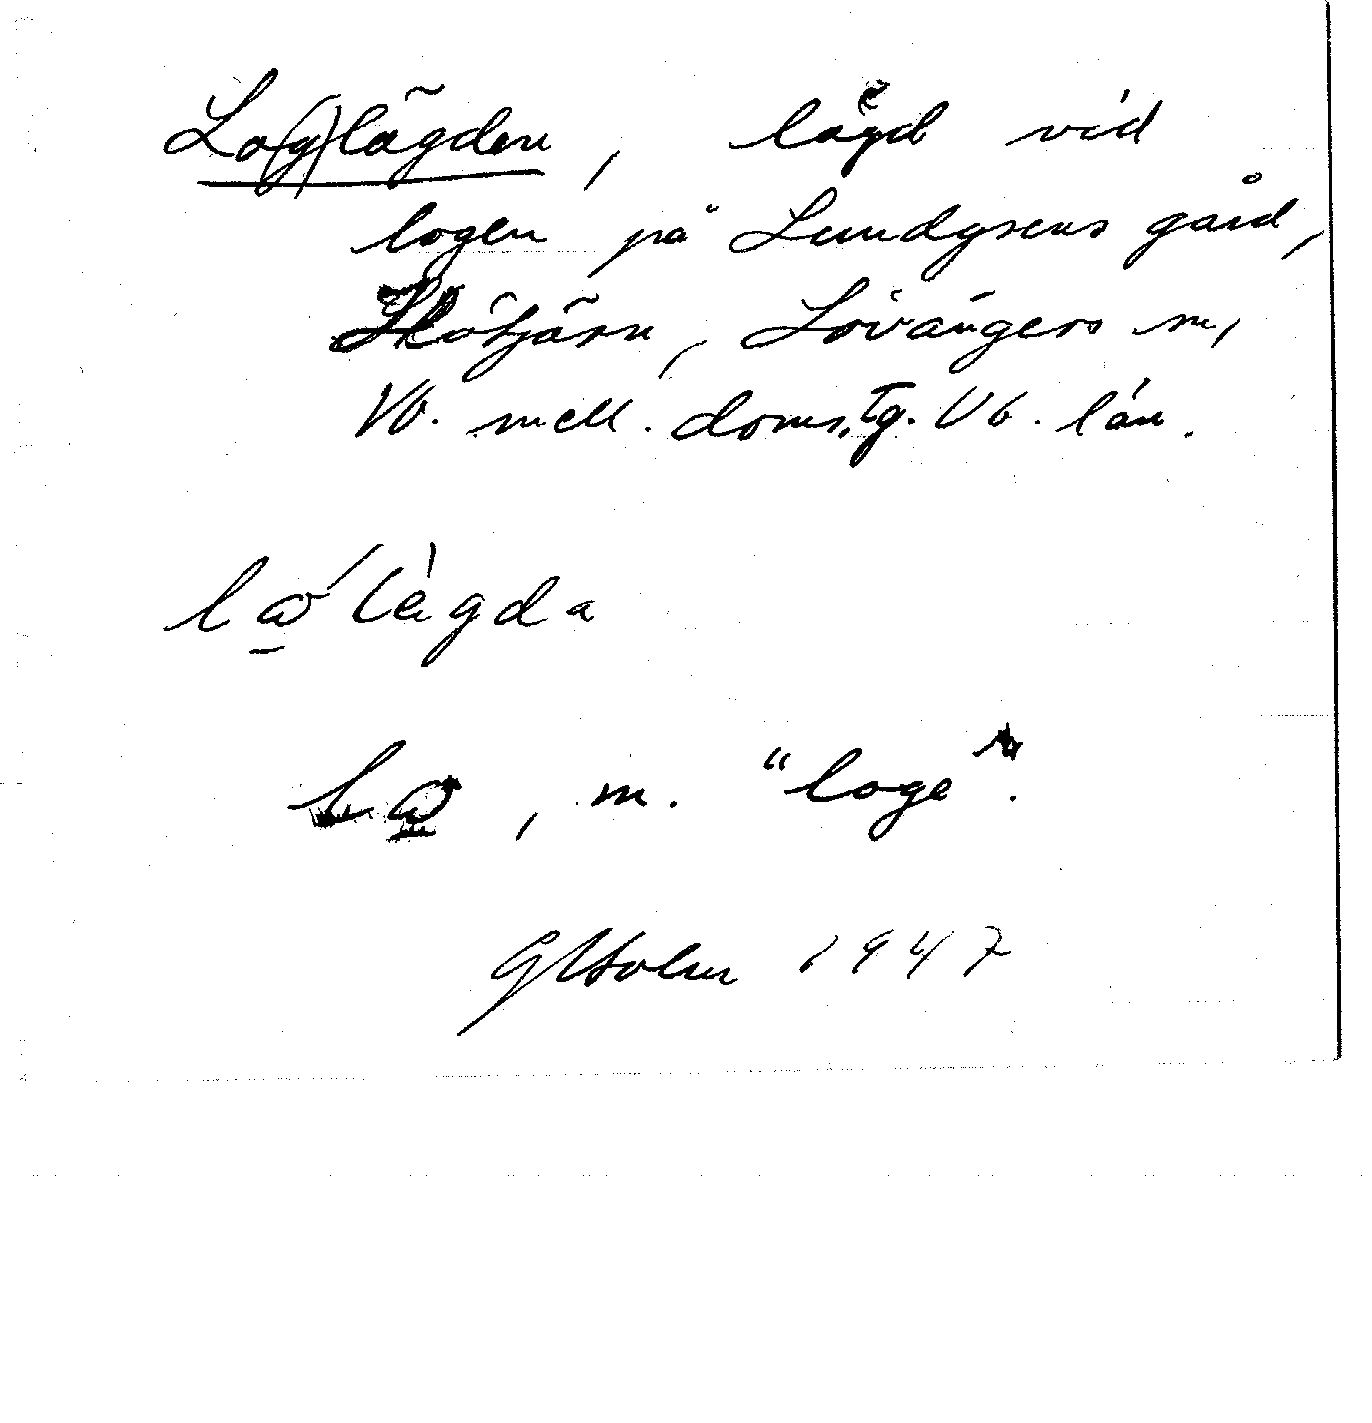 Lo(g)lägden, lägd vid
logen på Lundgrens gård,
Skötjärn, Lövångers sn,
Vb. mell. doms. tg. Vb. län.
lω̲ lègda
lω̲, m. "loge".
GHolm 1947